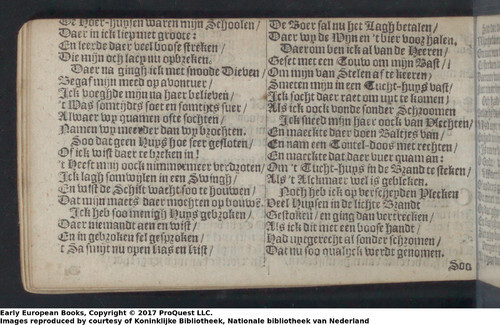 De Hoer-huysen waren mijn Schoolen/
Daer in ick liep met groote:
En leerde daer veel boose streken/
Die mijn och lacy nu opbreken.
Daer na gingh ick met snoode Dieven/
Begaf mijn meed op avontuer/
Ick voeghde mijn na haer believen/
't Was somtijdts soet en somtijts suer/
Alwaer wy quamen ofte sochten/
Namen wy meerder dan wy brochten.
Soo dat geen Huys hoe seer gesloten/
Of ick wist daer te breken in!
't Heeft mijn oock nimmermeer verdroten/
Ick lagh somwijlen in een
En wist de Schilt wacht soo te houwen/
Dat mijn maets daer mochten op bouwen.
Ick heb soo menigh Huys gebroken/
Daer niemandt aen en wist/
En in gebroken fel gesproken/
't Sa suyct nu open Kas en Kist/
De Boer sal nu het Lagh betalen/
Daer wy de Wijn en 't bier voor halen.
Daerom ben ick al van de Heeren/
Geset met een Touw om mijn Bast/
Om mijn van Stelen af te keeren/
Smeten mijn in een Tucht-huys vast/
Ick socht daer raet om uyt te komen/
Als ick oock vonde sonder Schroomen
Ick sneed mijn haer oock van Vlechten/
En maeckte daer doen Baltjes van
En nam een Tontel-doos met rechten/
En maeckte dat daer vuer quam an:
Om 't Tucht-huys in de Brandt te steken/
Als 't Alckmaer wel is gebleken.
Noch heb ick op verscheyden Plecken
Veel Huysen in de lichte Brandt
Gestoken/ en ging dan vertrecken/
Als ick dit met een boose handt/
Had uytgerecht al sonder schromen/
Dat nu soo qualyck werdt genomen.
Soo
Early European Books, Copyright © 2017 ProQuest LLC.
Images reproduced by courtesy of Koninklijke Bibliotheek, Nationale bibliotheek van Nederland